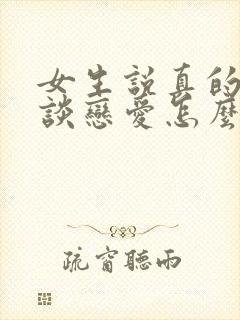 女生説真的
談戀愛怎麼
疏窗聽雨